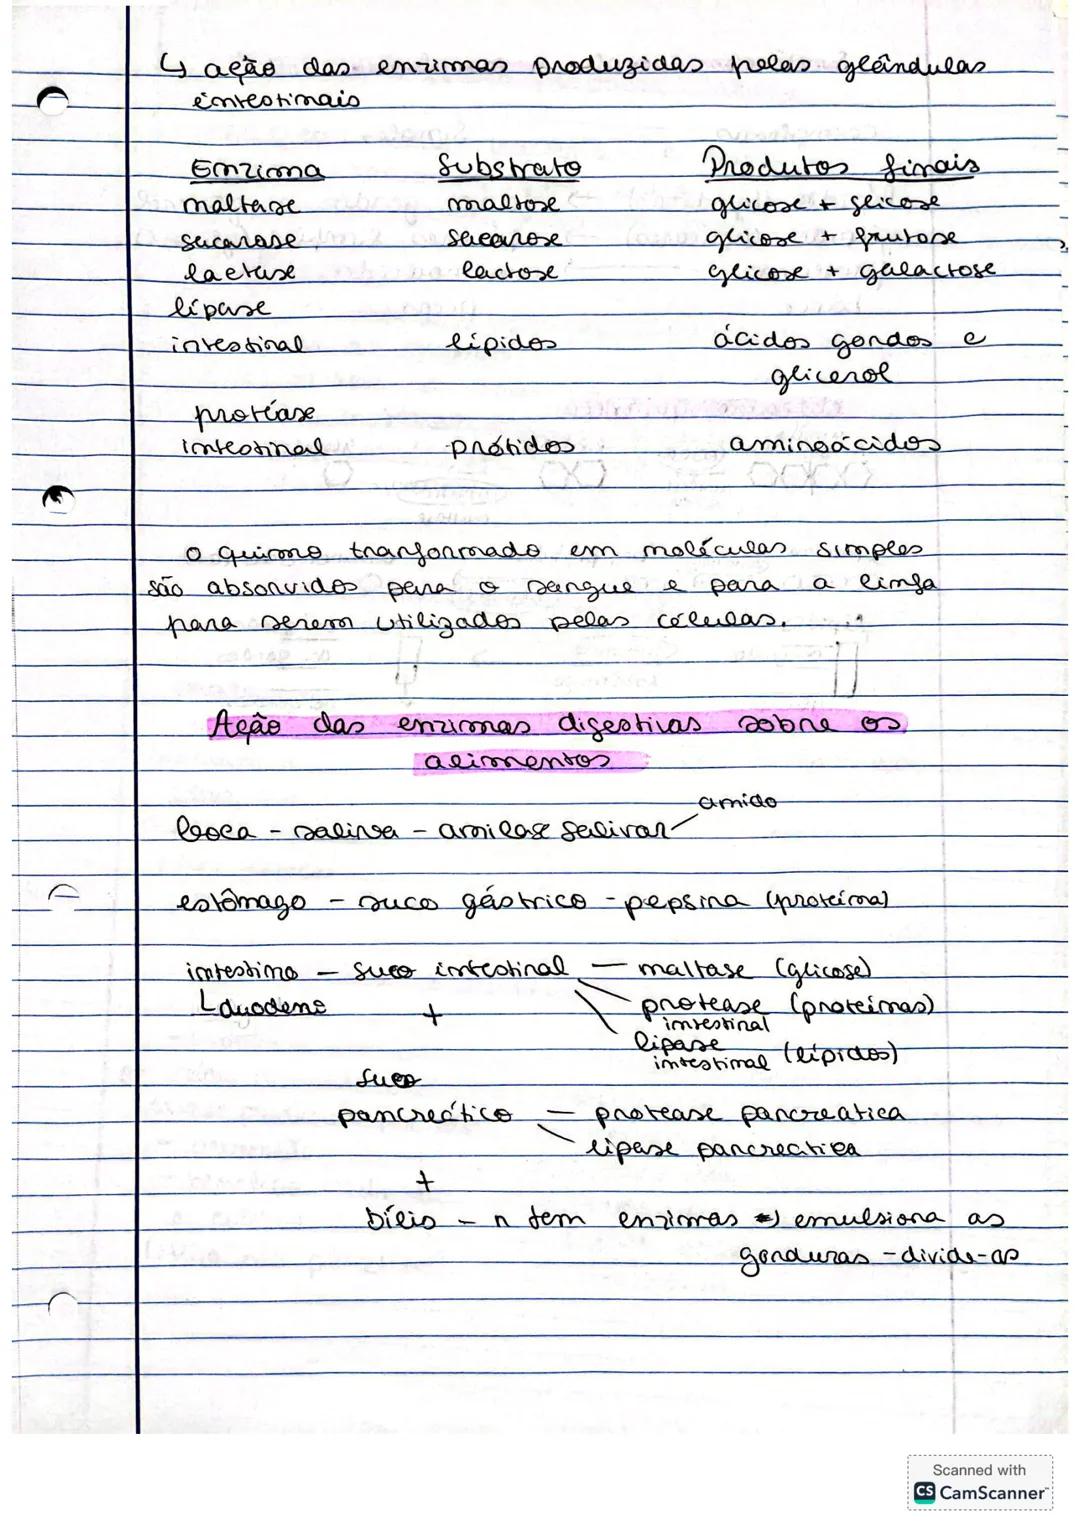 ↳ ação das enzimas produzidas pelas glândulas
intestinais
Enzima Substrato Produtos finais
maltase maltose glicose + glicose
sacarase sacarose glicose + frutose
lactase lactose glicose + galactose
lipase
intestinal lípidos ácidos gordos e
glicerol
protéase
intestinal prótidos aminoácidos
o quimo tranformado em moléculas simples
são absorvidos para o sangue e para a linfa
para serem utilizados pelas células.
Ação das enzimas digestivas sobre os
alimentos
amido
boca - saliva - amilase salivar
estômago - suco gástrico - pepsina (proteína)
intestino - suco intestinal - maltase (glicose)
duodeno + protease (proteínas)
intestinal
lipase
intestinal (lípidos)
suco
pancreático - protease pancreatica
lipase pancreatica
+
bílis - n tem enzimas => emulsiona as
gorduras - divide-as
Scanned with
CS CamScanner